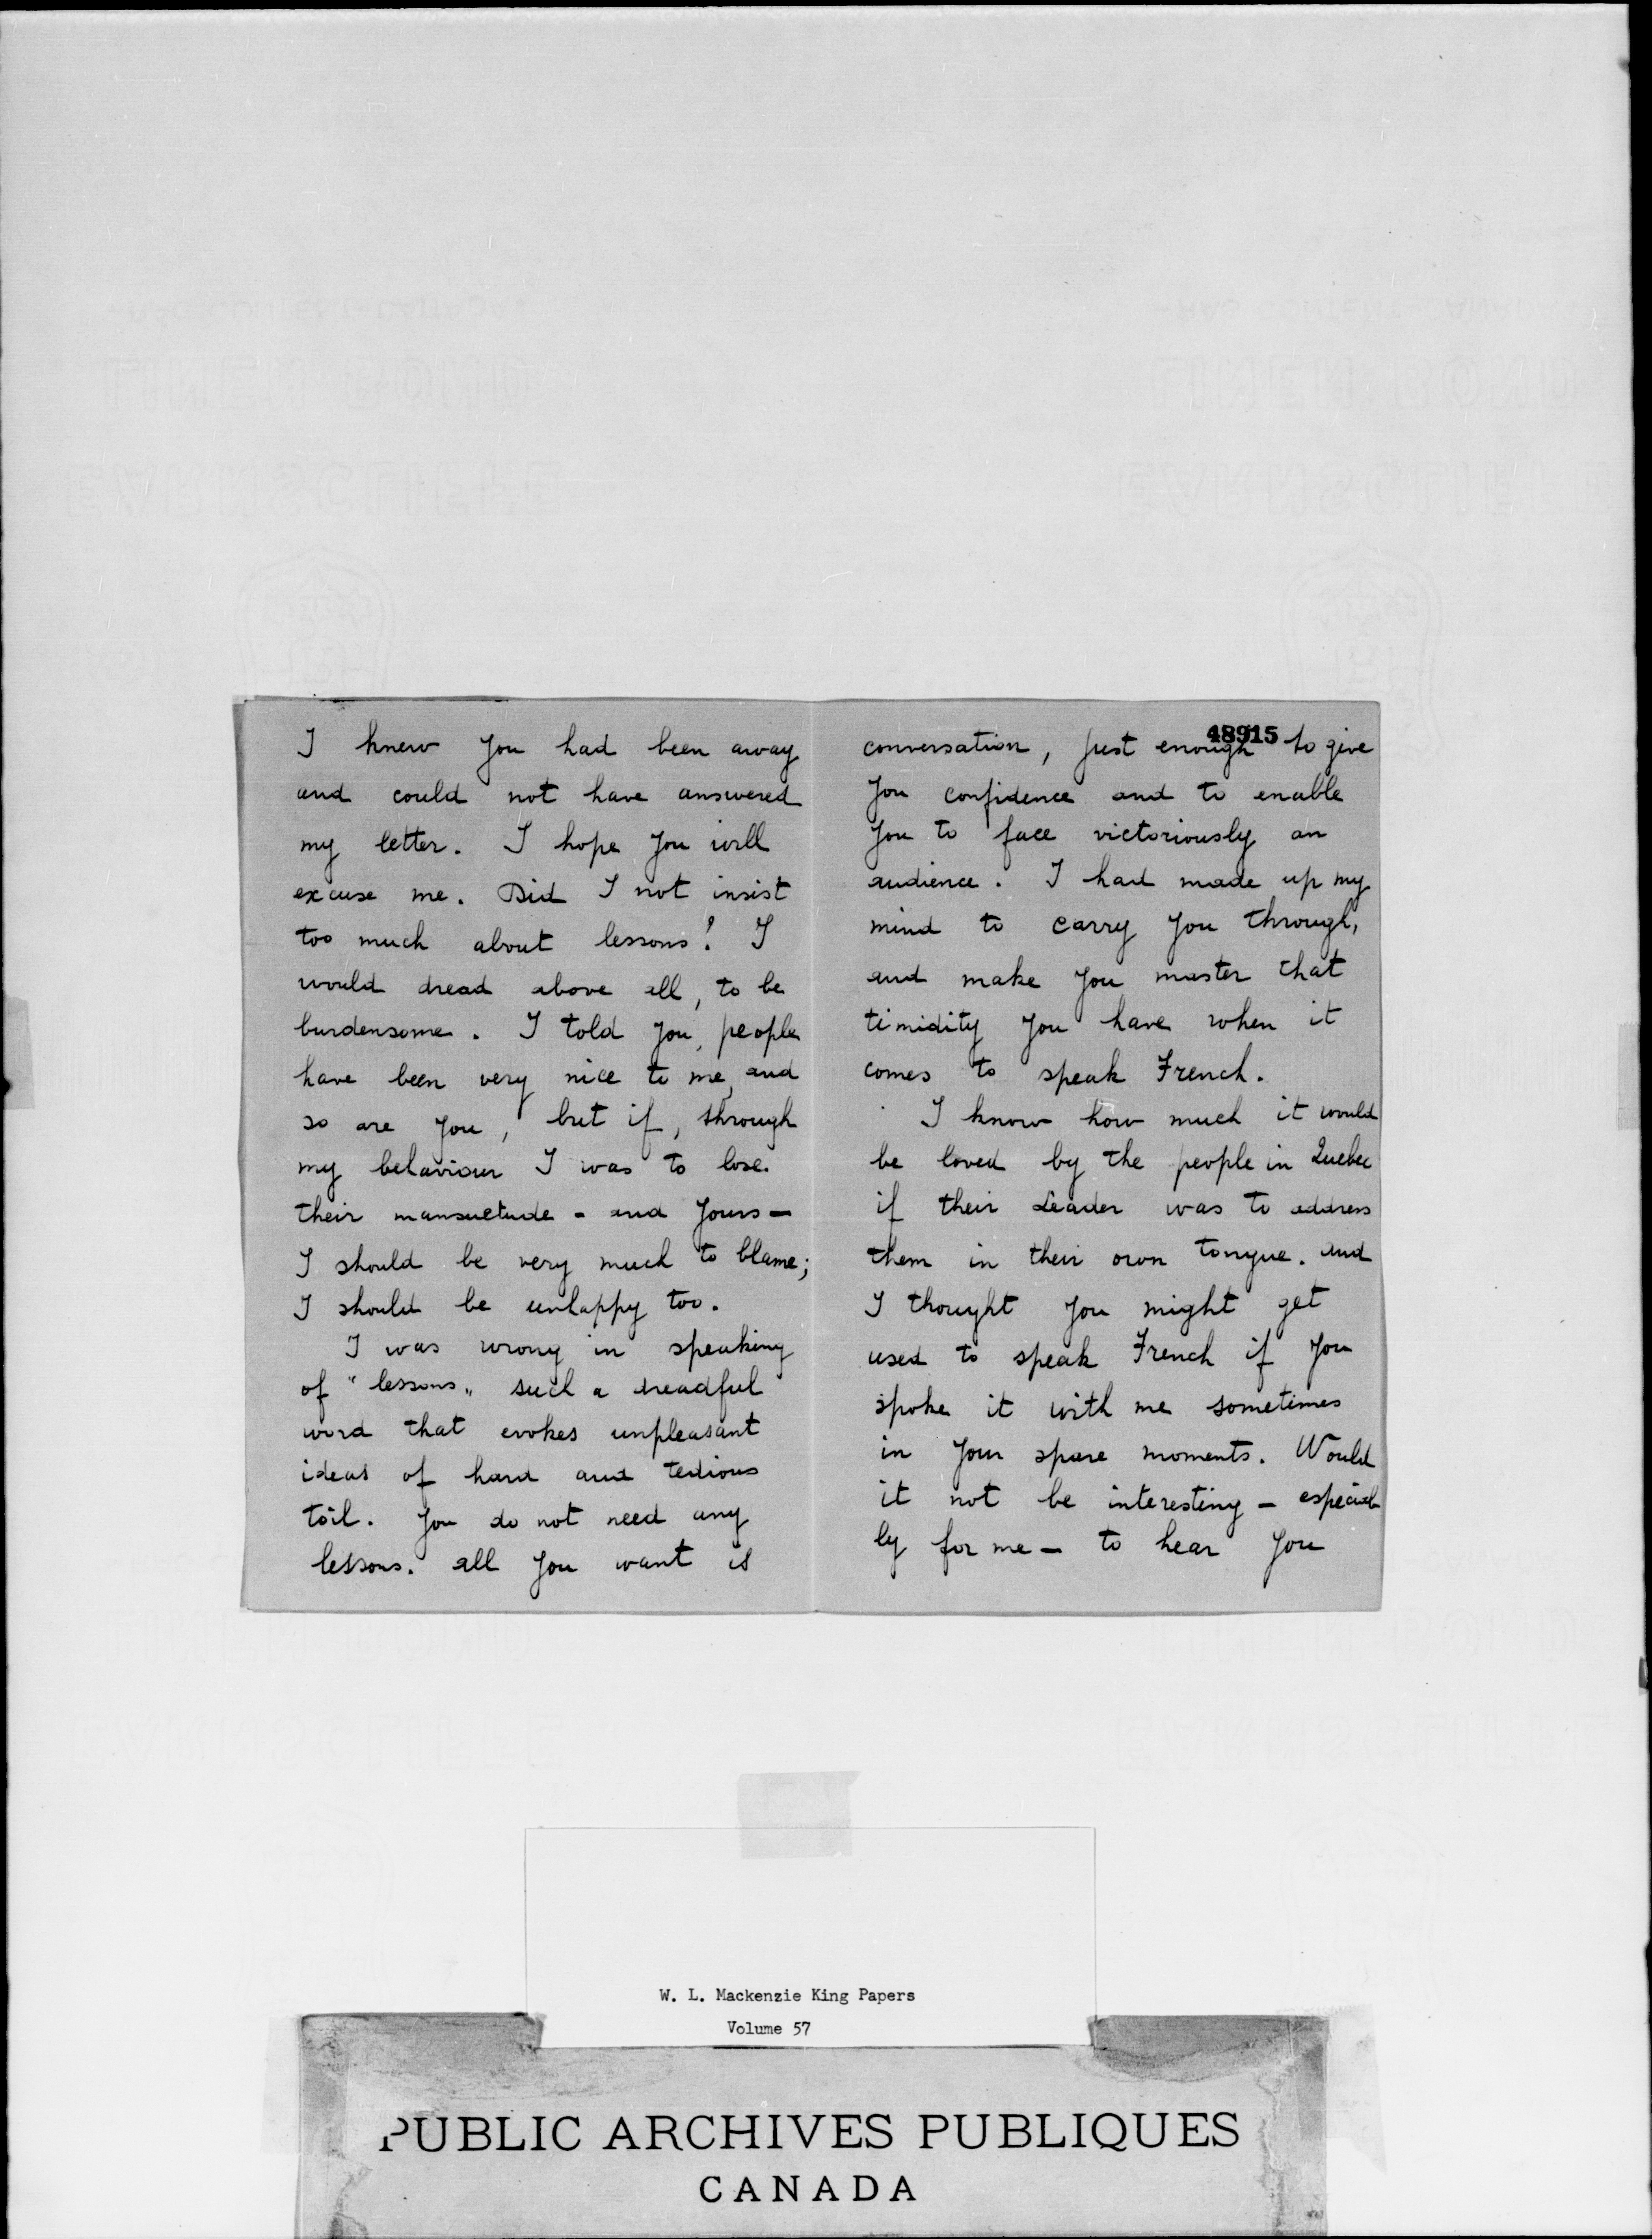 I knew you had been away
and could not have answered
my letter. I hope you will
excuse me. Did I not insist
too much about lessons? I
would dread above all, to be
burdensome. I told you, people
have been very nice to me, and
so are you, but if, through
my behaviour I was to lose
their mansuetude - and yours -
I should be very much to blame;
I should be unhappy too.
I was wrong in speaking
of "lessons" such a dreadful
word that evokes unpleasant
ideas of hard and tedious
toil. You do not need any
lessons. all you want is
48915
conversation, just enough to give
you confidence and to enable
you to face victoriously an
audience. I had made up my
mind to carry you through,
and make you master that
timidity you have when it
comes to speak French.
I know how much it would
be loved by the people in Quebec
if their Leader was to address
them in their own tongue. And
I thought you might get
used to speak French if you
spoke it with me sometimes
in your spare moments. Would
it not be interesting - especial-
ly for me - to hear you
W. L. Mackenzie King Papers
Volume 57
PUBLIC ARCHIVES PUBLIQUES
CANADA